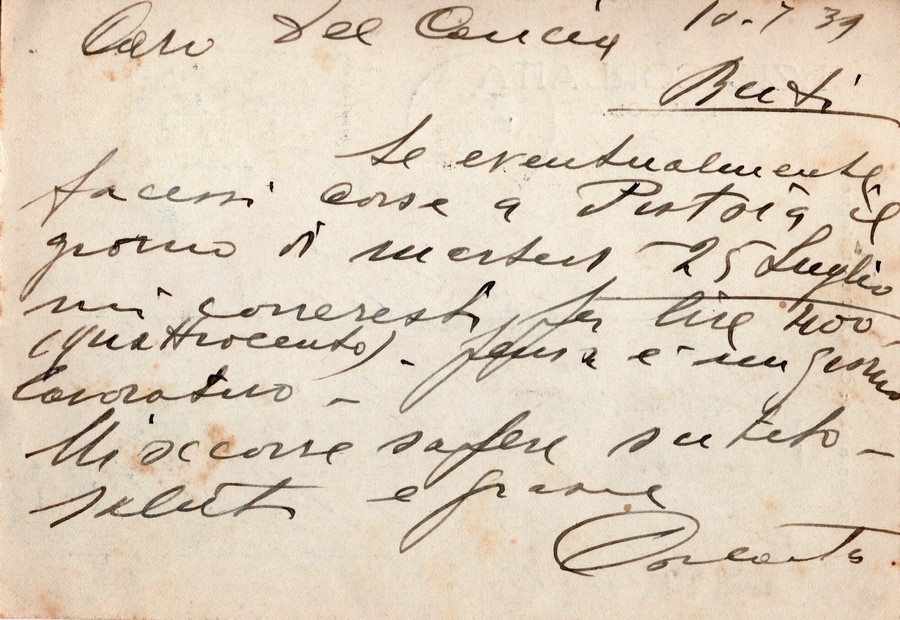 Caro Del Cancia 10.7 39
Buti
Se eventualmente
facessi corse a Pistoia il
giorno di martedi 25 Luglio
mi correresti per lire 400
(quattrocento) - pensa e un giorno
lavorativo -
Mi occorre sapere subito -
saluti e grazie